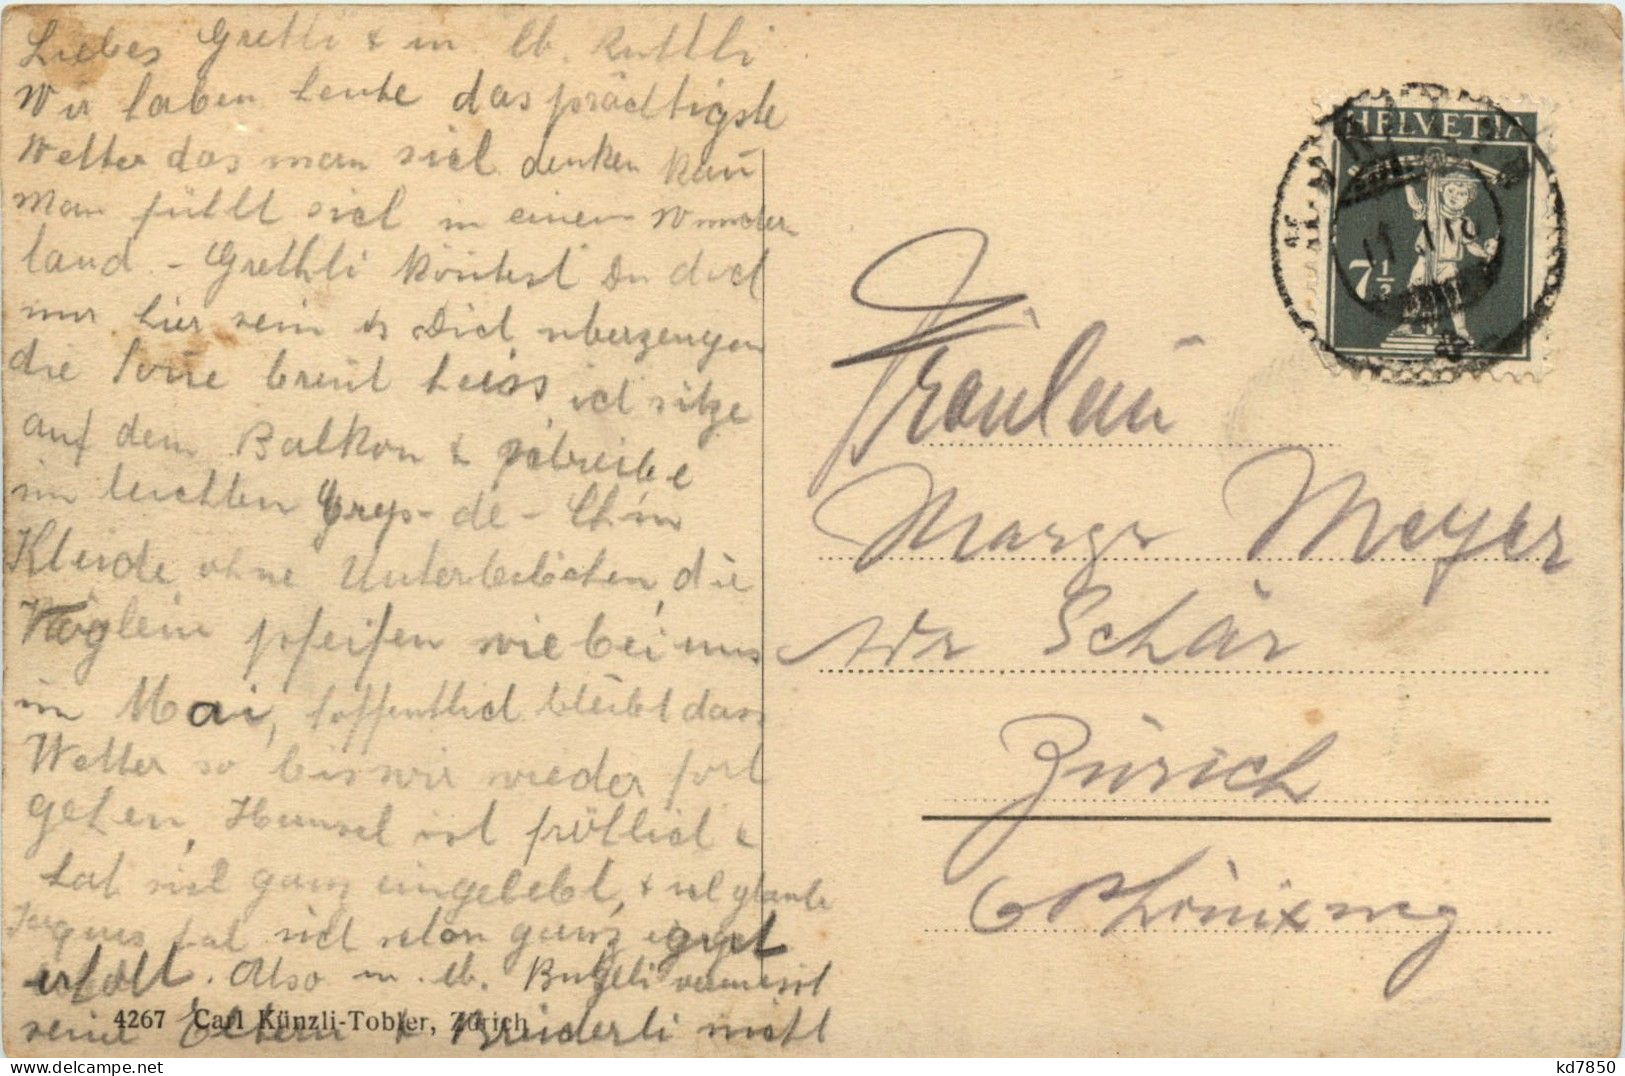 Liebes Grethli & m lb. Ruthli
Wir haben heute das prächtigste
Wetter das man sich denken kañ
Man fühlt sich in einem Wunder
land - Grethli köntest Du doch
nur hier sein & Dich uberzeugen
die Soñe breñt heiss, ich sitze
auf dem Balkon & schreibe
im leichten Creps-de-Chin
Kleide ohne Unterleibchen, die
Vöglein pfeifen wie bei uns
im Mai, hoffentlich bleibt das
Wetter so bis wir wieder fort
gehen, Hansel ist fröhlich &
hat sich ganz eingelebt, & ich glaube
Jaques hat sich schon ganz
erholt. Also m. lb. vermisst
seine Eltern & Brüderli nicht
4267 Carl Künzli-Tobler, Zürich
HELVETIA
7½
Fräulein
Margr Meyer
adr Schär
Zürich
6 Phönixweg
kd7850